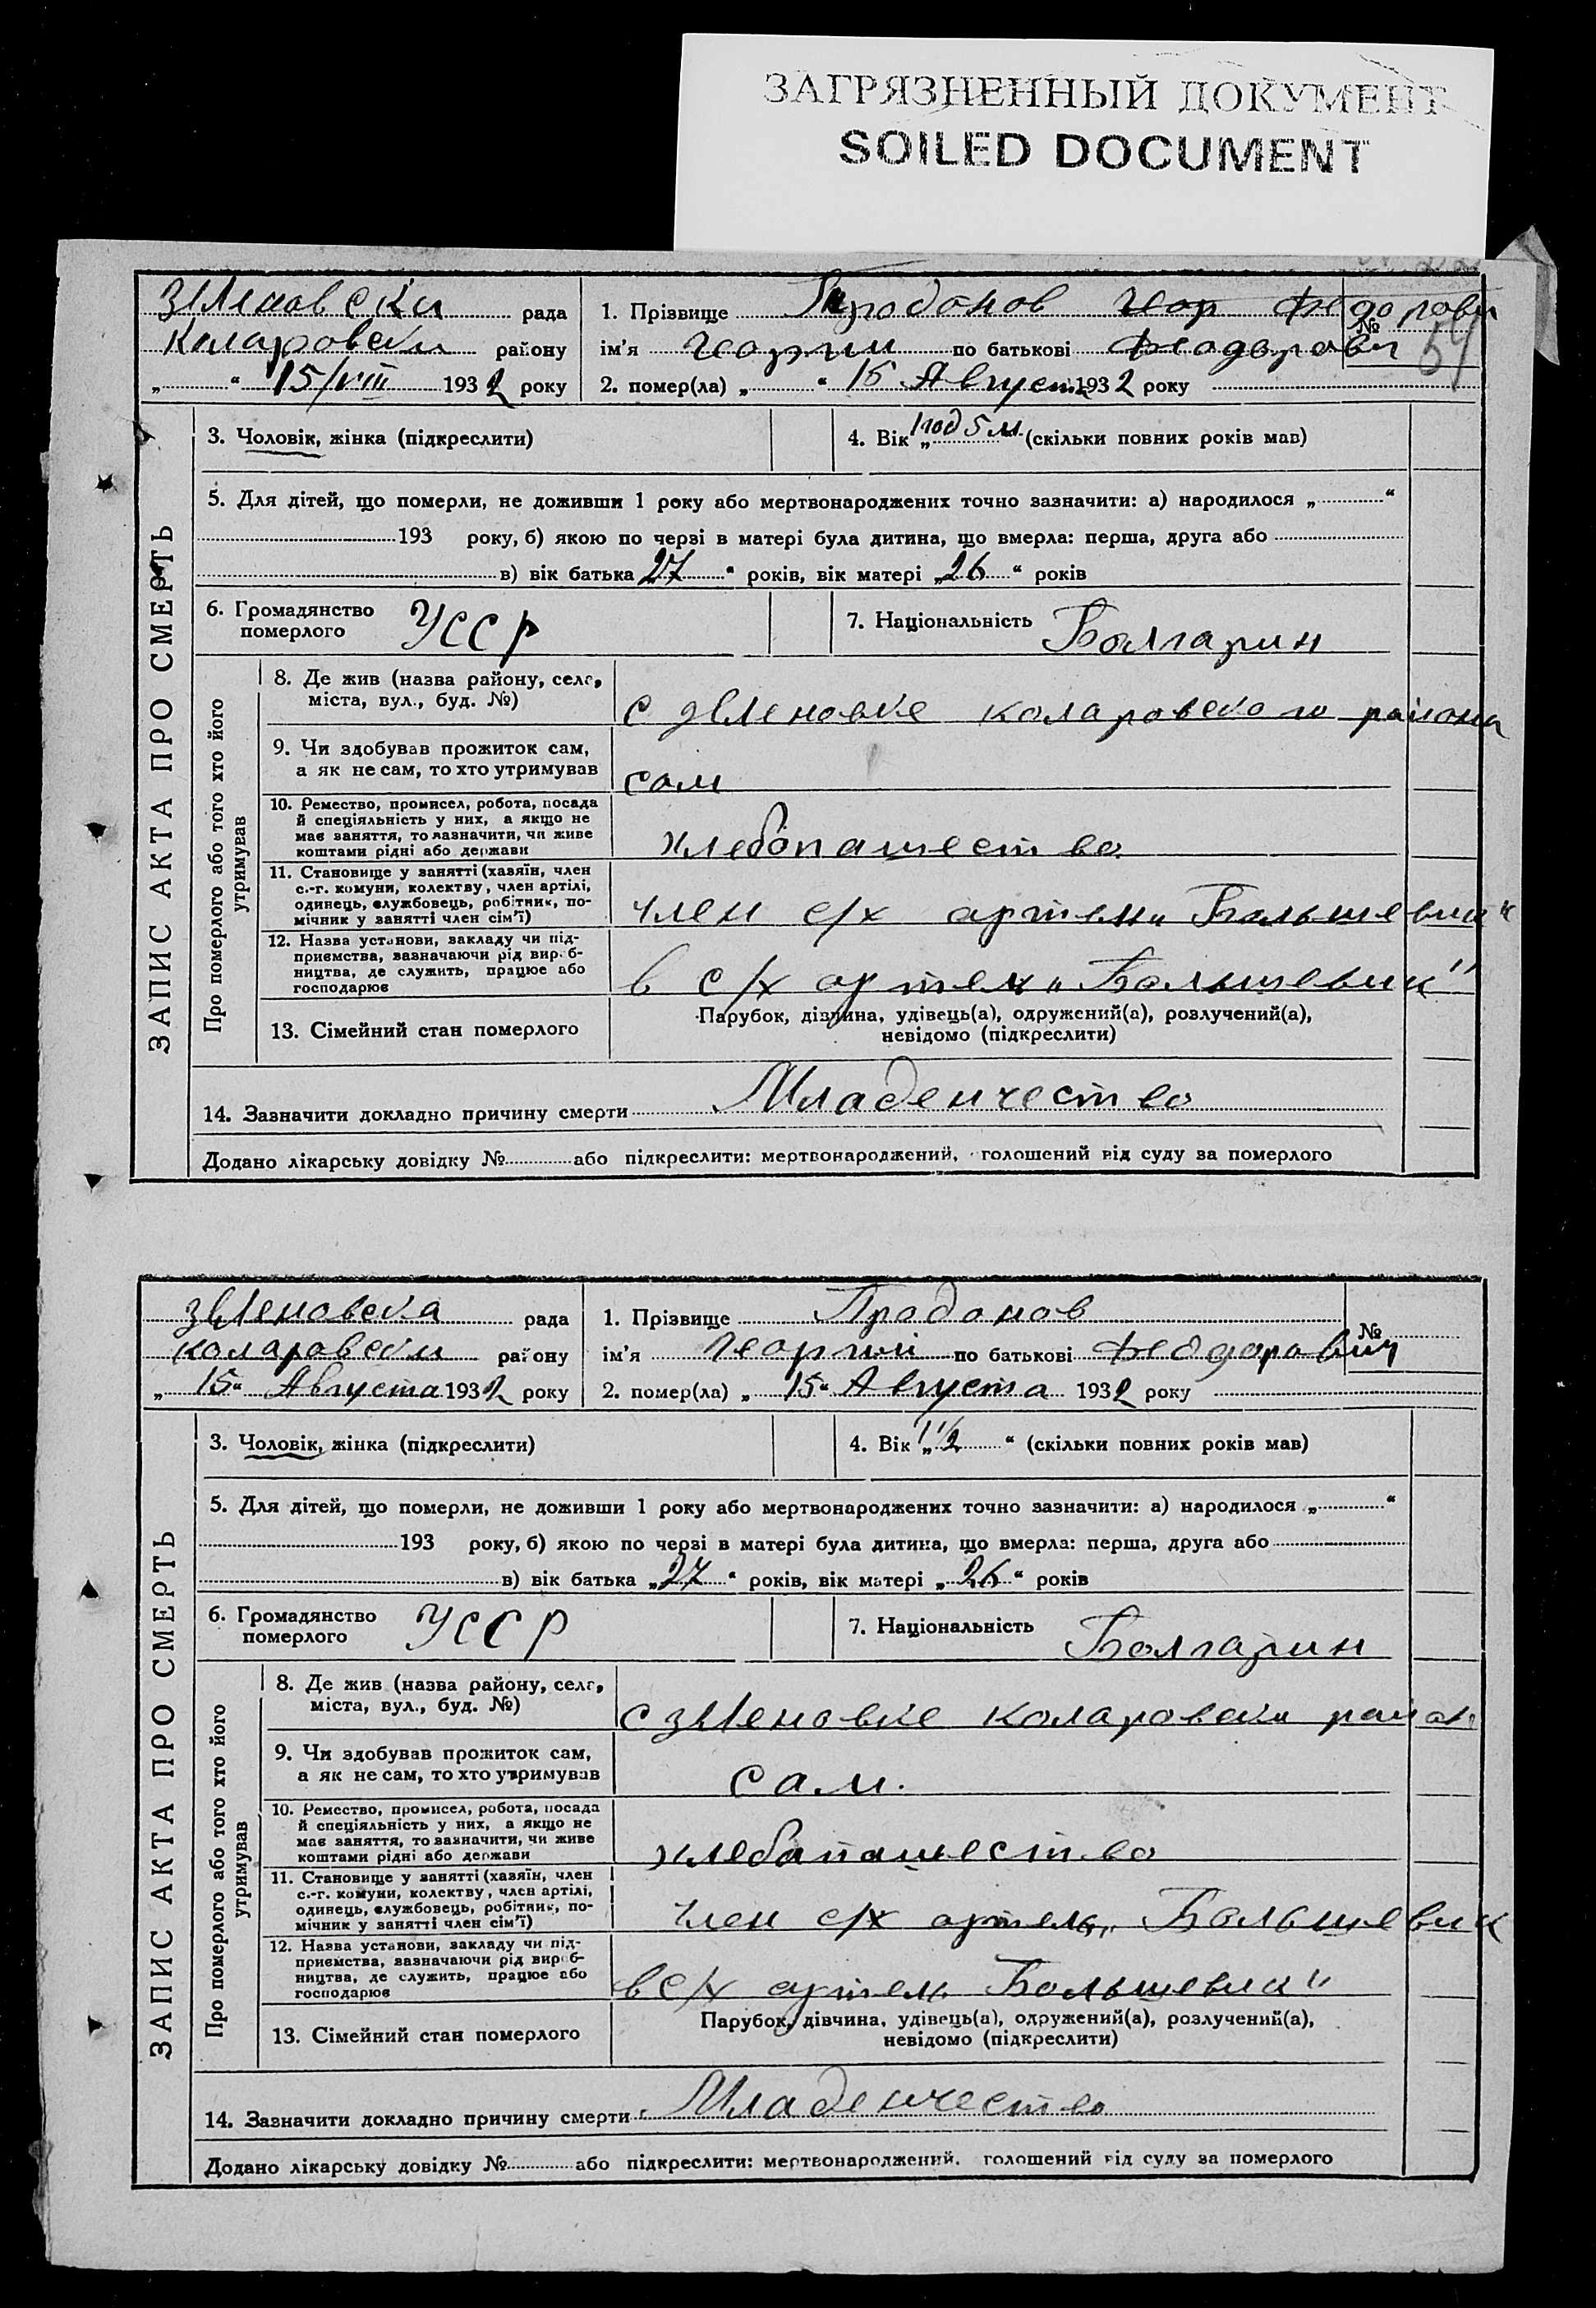 ЗАГРЯЗНЕННЫЙ ДОКУМЕНТ
SOILED DOCUMENT
рада 1. Прізвище Продонов Геор
№ 54
району ім'я Георгии по батькові Феодорович
„ “ 15/VIII 1932 року 2. помер(ла) „ “ 15 Августа 1932 року
ЗАПИС АКТА ПРО СМЕРТЬ
3. Чоловік, жінка (підкреслити) 4. Вік „1 год 5 м.“ (скільки повних років мав)
5. Для дітей, що померли, не доживши 1 року або мертвонароджених точно зазначити: а) народилося „ “
193 року, б) якою по черзі в матері була дитина, що вмерла: перша, друга або
в) вік батька 27 “ років, вік матері „26“ років
6. Громадянство
померлого УССР 7. Національність Болгарин
Про померлого або того хто його
утримував
8. Де жив (назва району, село,
міста, вул., буд. №) с коларовского района
9. Чи здобував прожиток сам,
а як не сам, то хто утримував сам
10. Ремество, промисел, робота, посада
й спеціяльність у них, а якщо не
має заняття, то зазначити, чи живе
коштами рідні або держави хлебопашество
11. Становище у занятті (хазяїн, член
с.-г. комуни, колектву, член артілі,
одинець, службовець, робітник, по-
мічник у занятті член сім'ї) член с/х артели „Большевик“
12. Назва установи, закладу чи під-
приємства, зазначаючи рід вироб-
ництва, де служить, працює або
господарює в с/х артели „Большевик“
13. Сімейний стан померлого Парубок, дівчина, удівець(а), одружений(а), розлучений(а),
невідомо (підкреслити)
14. Зазначити докладно причину смерти Младенчество
Додано лікарську довідку № або підкреслити: мертвонароджений, голошений від суду за померлого
рада 1. Прізвище Продонов
№
Коларовски району ім'я Георгий по батькові Феодорович
„15“ Августа 1932 року 2. помер(ла) „15“ Августа 1932 року
ЗАПИС АКТА ПРО СМЕРТЬ
3. Чоловік, жінка (підкреслити) 4. Вік „1 1/2“ (скільки повних років мав)
5. Для дітей, що померли, не доживши 1 року або мертвонароджених точно зазначити: а) народилося „ “
193 року, б) якою по черзі в матері була дитина, що вмерла: перша, друга або
в) вік батька „27“ років, вік матері „26“ років
6. Громадянство
померлого УССР 7. Національність Болгарин
Про померлого або того хто його
утримував
8. Де жив (назва району, село,
міста, вул., буд. №) с коларовски
9. Чи здобував прожиток сам,
а як не сам, то хто утримував сам.
10. Ремество, промисел, робота, посада
й спеціяльність у них, а якщо не
має заняття, то зазначити, чи живе
коштами рідні або держави хлебопашество
11. Становище у занятті (хазяїн, член
с.-г. комуни, колектву, член артілі,
одинець, службовець, робітник, по-
мічник у занятті член сім'ї) член с/х артели „Большевик
12. Назва установи, закладу чи під-
приємства, зазначаючи рід вироб-
ництва, де служить, працює або
господарює в с/х артели Большевик“
13. Сімейний стан померлого Парубок, дівчина, удівець(а), одружений(а), розлучений(а),
невідомо (підкреслити)
14. Зазначити докладно причину смерти Младенчество
Додано лікарську довідку № або підкреслити: мертвонароджений, голошений від суду за померлого